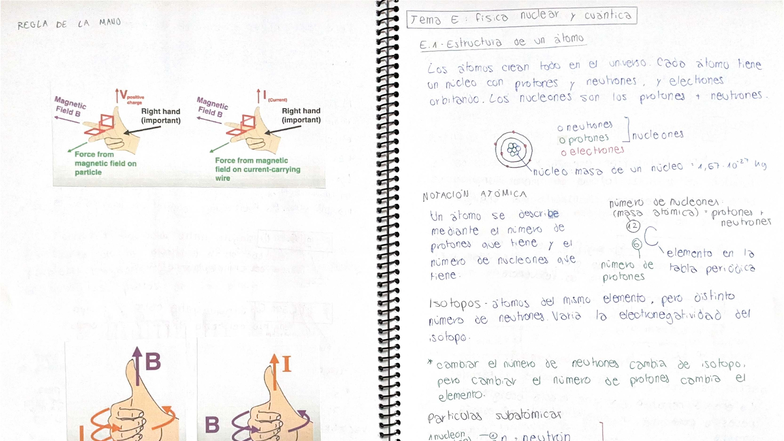 REGLA DE LA MANO
V positive charge
Magnetic Field B
Right hand (important)
Force from magnetic field on particle
I (Current)
Magnetic Field B
Right hand (important)
Force from magnetic field on current-carrying wire
B
I
I
B
Tema E: física nuclear y cuántica
E.1 Estructura de un átomo
Los átomos crean todo en el universo. Cada átomo tiene
un núcleo con protones y neutrones, y electrones
orbitando. Los nucleones son los protones + neutrones.
o neutrones
o protones
nucleones
o electrones
núcleo masa de un núcleo: 1,67·10⁻²⁷ kg
NOTACIÓN ATÓMICA
Un átomo se describe
mediante el número de
protones que tiene y el
número de nucleones que
tiene.
número de nucleones
(masa atómica) · protones +
neutrones
12
C
6
elemento en la
tabla periódica
número de
protones
Isotopos · átomos del mismo elemento, pero distinto
número de neutrones. Varia la electronegatividad del
isotopo.
* cambiar el número de neutrones cambia de isotopo,
pero cambiar el número de protones cambia el
elemento.
Partículas subatómicas
1 nucleon
n · neutrón